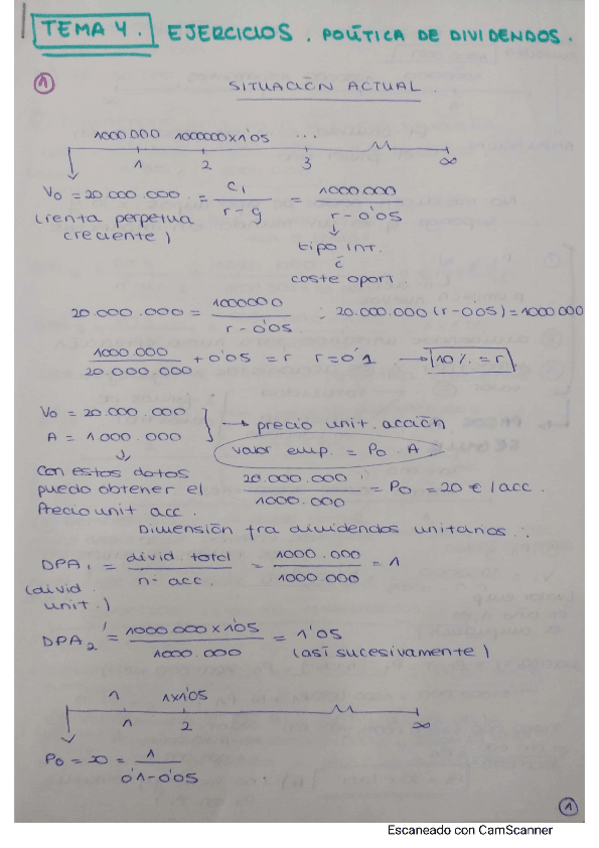 TEMA 4. EJERCICIOS. POLÍTICA DE DIVIDENDOS.
1 SITUACIÓN ACTUAL.
1000.000 1000000x1'05 ...
1 2 3 ∞
V0 = 20.000.000. = C1 / r - g = 1000.000 / r - 0'05
(renta perpetua
creciente)
tipo int.
ć
coste oport.
20.000.000 = 1000000 / r - 0'05 ; 20.000.000 (r - 0'05) = 1000000
1000.000 / 20.000.000 + 0'05 = r r = 0'1 → 10% = r
V0 = 20.000.000
A = 1000.000 } → precio unit. acción
valor emp. = P0 . A
Con estos datos
puedo obtener el
Precio unit acc.
20.000.000 / 1000.000 = P0 = 20 € / acc.
Dimensión fra dividendos unitarios :
DPA1 = divid. total / n. acc. = 1000.000 / 1000.000 = 1
(divid.
unit.)
DPA2 = 1000.000x1'05 / 1000.000 = 1'05
(así sucesivamente)
1 1x1'05
1 2 ∞
P0 = 20 = 1 / 0'1 - 0'05
1
Escaneado con CamScanner